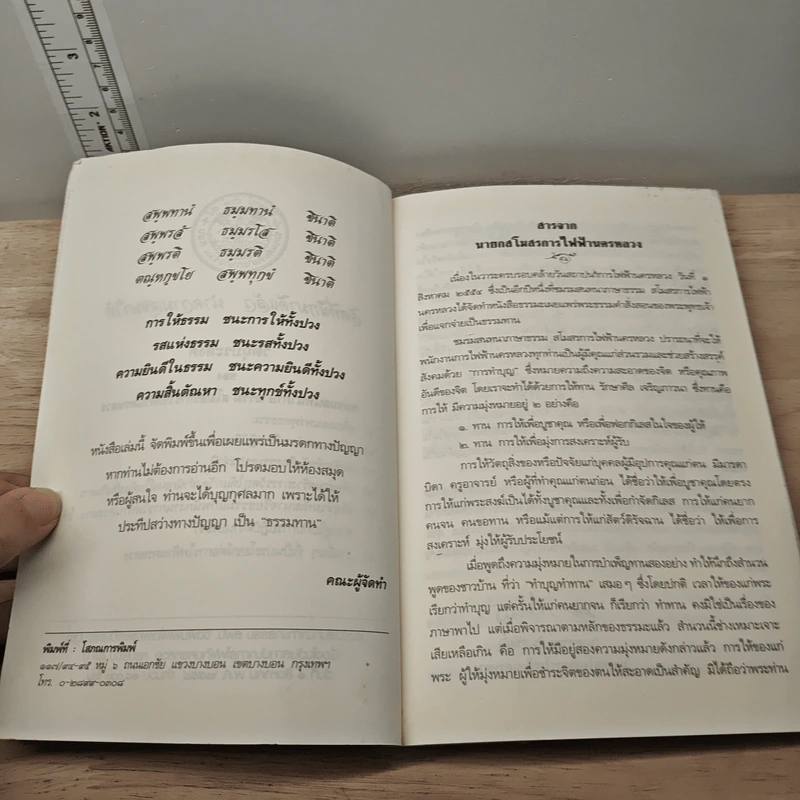 สพฺพทานํ ธมฺมทานํ ชินาติ
สพฺพรสํ ธมฺมรโส ชินาติ
สพฺพรติํ ธมฺมรติ ชินาติ
ตณฺหกฺขโย สพฺพทุกฺขํ ชินาติ
การให้ธรรม ชนะการให้ทั้งปวง
รสแห่งธรรม ชนะรสทั้งปวง
ความยินดีในธรรม ชนะความยินดีทั้งปวง
ความสิ้นตัณหา ชนะทุกข์ทั้งปวง
หนังสือเล่มนี้ จัดพิมพ์ขึ้นเพื่อเผยแพร่เป็นมรดกทางปัญญา
หากท่านไม่ต้องการอ่านอีก โปรดมอบให้ห้องสมุด
หรือผู้สนใจ ท่านจะได้บุญกุศลมาก เพราะได้ให้
ประทีปสว่างทางปัญญา เป็น "ธรรมทาน"
คณะผู้จัดทำ
พิมพ์ที่ : โสภณการพิมพ์
๑๑๗/๙๔-๙๕ หมู่ ๖ ถนนเอกชัย แขวงบางบอน เขตบางบอน กรุงเทพฯ
โทร. ๐-๒๘๙๙-๐๓๐๘
สารจาก
นายกสโมสรการไฟฟ้านครหลวง
เนื่องในวาระครบรอบคล้ายวันสถาปนาการไฟฟ้านครหลวง วันที่ ๑
สิงหาคม ๒๕๕๔ ซึ่งเป็นอีกปีหนึ่งที่ชมรมสนทนาภาษาธรรม สโมสรการไฟฟ้า
นครหลวงได้จัดทำหนังสือธรรมะเผยแพร่พระธรรมคำสั่งสอนของพระพุทธเจ้า
เพื่อแจกจ่ายเป็นธรรมทาน
ชมรมสนทนาภาษาธรรม สโมสรการไฟฟ้านครหลวง ปรารถนาที่จะให้
พนักงานการไฟฟ้านครหลวงทุกท่านเป็นผู้มีคุณแก่ส่วนรวมและช่วยสร้างสรรค์
สังคมด้วย "การทำบุญ" ซึ่งหมายความถึงความสะอาดของจิต หรือคุณภาพ
อันดีของจิต โดยเราจะทำได้ด้วยการให้ทาน รักษาศีล เจริญภาวนา ซึ่งทานคือ
การให้ มีความมุ่งหมายอยู่ ๒ อย่างคือ
๑. ทาน การให้เพื่อบูชาคุณ หรือเพื่อฟอกกิเลสในใจของผู้ให้
๒. ทาน การให้เพื่อมุ่งการสงเคราะห์ผู้รับ
การให้วัตถุสิ่งของหรือปัจจัยแก่บุคคลผู้มีอุปการคุณแก่ตน มีมารดา
บิดา ครูอาจารย์ หรือผู้ที่ทำคุณแก่ตนก่อน ได้ชื่อว่าให้เพื่อบูชาคุณโดยตรง
การให้แก่พระสงฆ์เป็นได้ทั้งบูชาคุณและทั้งเพื่อกำจัดกิเลส การให้แก่คนยาก
คนจน คนขอทาน หรือแม้แต่การให้แก่สัตว์ดิรัจฉาน ได้ชื่อว่า ให้เพื่อการ
สงเคราะห์ มุ่งให้ผู้รับประโยชน์
เมื่อพูดถึงความมุ่งหมายในการบำเพ็ญทานสองอย่าง ทำให้นึกถึงสำนวน
พูดของชาวบ้าน ที่ว่า "ทำบุญทำทาน" เสมอ ๆ ซึ่งโดยปกติ เวลาให้ของแก่พระ
เรียกว่าทำบุญ แต่ครั้นให้แก่คนยากจน ก็เรียกว่า ทำทาน คงมิใช่เป็นเรื่องของ
ภาษาพาไป แต่เมื่อพิจารณาตามหลักของธรรมะแล้ว สำนวนนี้ช่างเหมาะเจาะ
เสียเหลือเกิน คือ การให้มีอยู่สองความมุ่งหมายดังกล่าวแล้ว การให้ของแก่
พระ ผู้ให้มุ่งหมายเพื่อชำระจิตของตนให้สะอาดเป็นสำคัญ มิได้ถือว่าพระท่าน